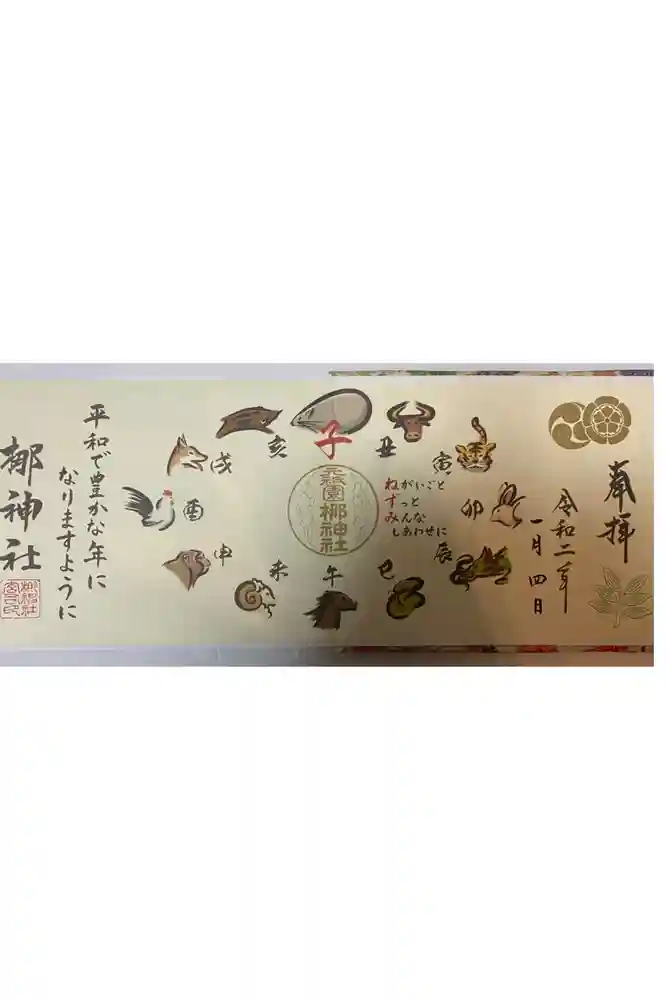 奉拝
令和二年
一月四日
子
丑
寅
卯
辰
巳
午
未
申
酉
戌
亥
ねがいごと
ずっと
みんな
しあわせに
元祇園
梛神社
平和で豊かな年に
なりますように
梛神社